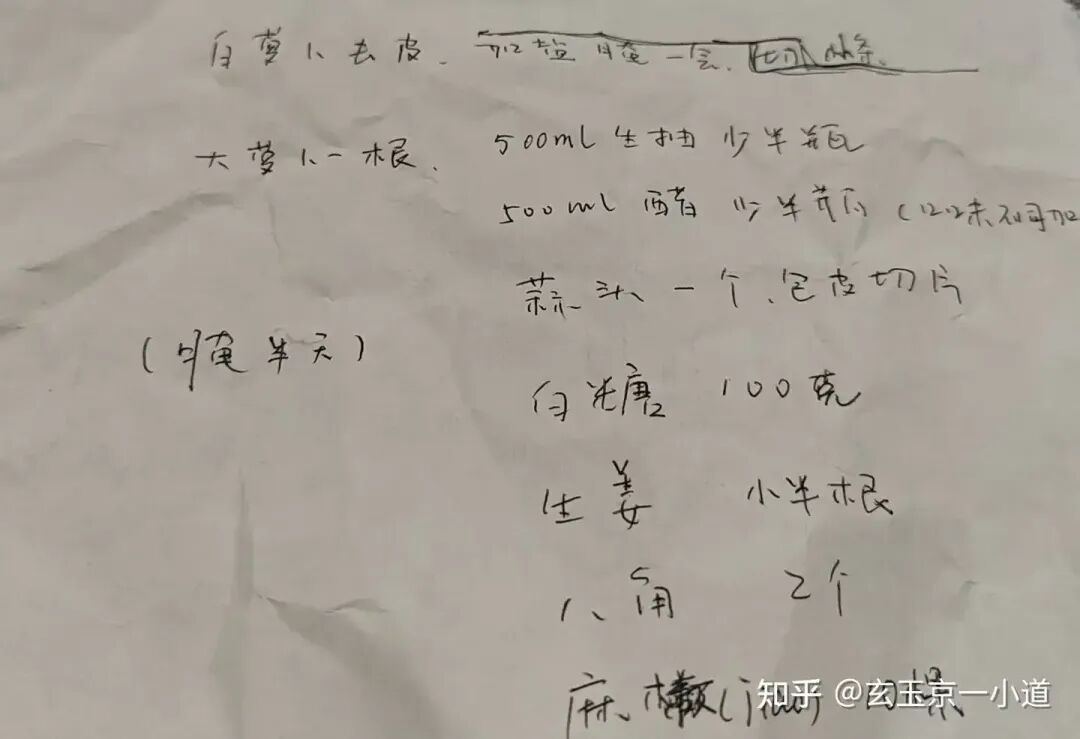 白萝卜去皮. 加盐腌一会. 切小条.
大萝卜一根. 500ml 生抽 少半瓶
500ml 醋 少半瓶 (口味不同加
蒜头一个、包皮切片
(腌半天)
白糖 100克
生姜 小半根
八角 2个
麻 椒(jiao)
知乎 @玄玉京一小道